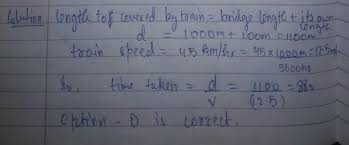 Solution length to be covered by train = bridge length + its own length
d = 1000m + 100m = 1100m
train speed = 45 km/hr = 45 x 1000m = 12.5m
3600s
So, time taken = d = 1100 = 88s
v (12.5)
Option - D is correct.